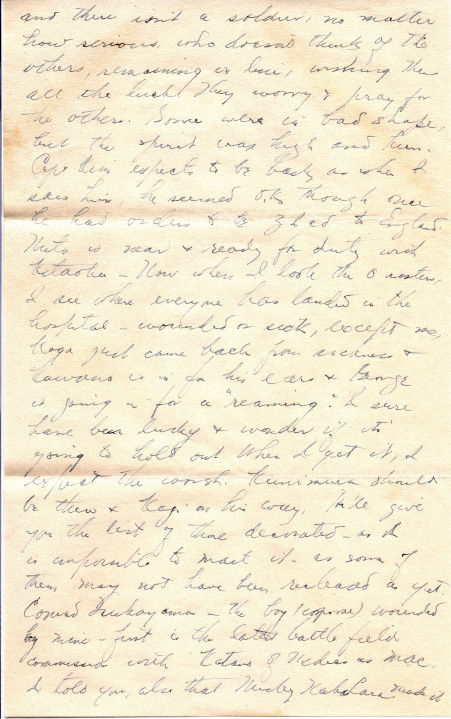 and there isn't a soldier, no matter
how serious, who doesn't think of the
others, remaining in line, wishing them
all the luck. They worry & pray for
the others. Some were in bad shape,
but the spirit was high and firm.
Capt Kim expects to be back as when I
saw him, he seemed O.K. though once
he had orders to be Z I ed to England.
is near & ready for duty with
Kitaoka - Now when I look the O roster,
I see where everyone has landed in the
hospital - wounded or sick, except me,
Koga just came back from sickness &
Kawano is in for his ears & George
is going in for a "reaming". I sure
have been lucky & wonder if it's
going to hold out. When I get it, I
expect the worst. Kunimura should
be there & Kagi on his way. He'll give
you the list of those decorated - as it
is impossible to mail it - as some of
them may not have been released as yet.
Conrad Tsukayama - the boy (corporal) wounded
by mine - first is the latest battle field
commission with
I told you, also that Wesley made it